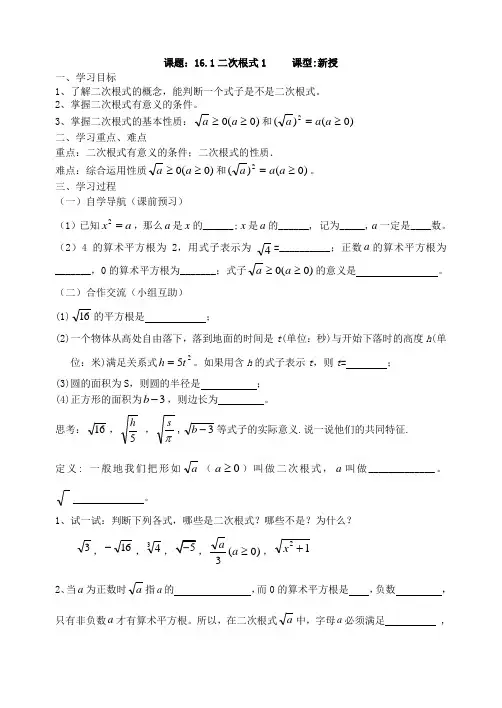 课题：16.1二次根式1 课型:新授
一、学习目标
1、了解二次根式的概念，能判断一个式子是不是二次根式。
2、掌握二次根式有意义的条件。
3、掌握二次根式的基本性质：√a ≥ 0(a ≥ 0) 和 (√a)² = a(a ≥ 0)
二、学习重点、难点
重点：二次根式有意义的条件；二次根式的性质．
难点：综合运用性质 √a ≥ 0(a ≥ 0) 和 (√a)² = a(a ≥ 0)。
三、学习过程
（一）自学导航（课前预习）
（1）已知 x² = a，那么 a 是 x 的______；x 是 a 的______，记为_____，a 一定是____数。
（2）4 的算术平方根为 2，用式子表示为 √4 =__________；正数 a 的算术平方根为
_______，0 的算术平方根为_______；式子 √a ≥ 0(a ≥ 0) 的意义是 。
（二）合作交流（小组互助）
(1) √16 的平方根是 ；
(2)一个物体从高处自由落下，落到地面的时间是 t(单位：秒)与开始下落时的高度 h(单
位：米)满足关系式 h = 5t²。如果用含 h 的式子表示 t，则 t= ；
(3)圆的面积为 S，则圆的半径是 ；
(4)正方形的面积为 b − 3，则边长为 。
思考：√16，√(h/5)，√(s/π)，√(b − 3) 等式子的实际意义.说一说他们的共同特征.
定义: 一般地我们把形如 √a（a ≥ 0）叫做二次根式，a 叫做_____________。
√ _____________。
1、试一试：判断下列各式，哪些是二次根式？哪些不是？为什么？
√3，−√16，∛4，√−5，√a/3 (a ≥ 0)，√(x² + 1)
2、当 a 为正数时 √a 指 a 的 ，而 0 的算术平方根是 ，负数 ，
只有非负数 a 才有算术平方根。所以，在二次根式 √a 中，字母 a 必须满足 ，